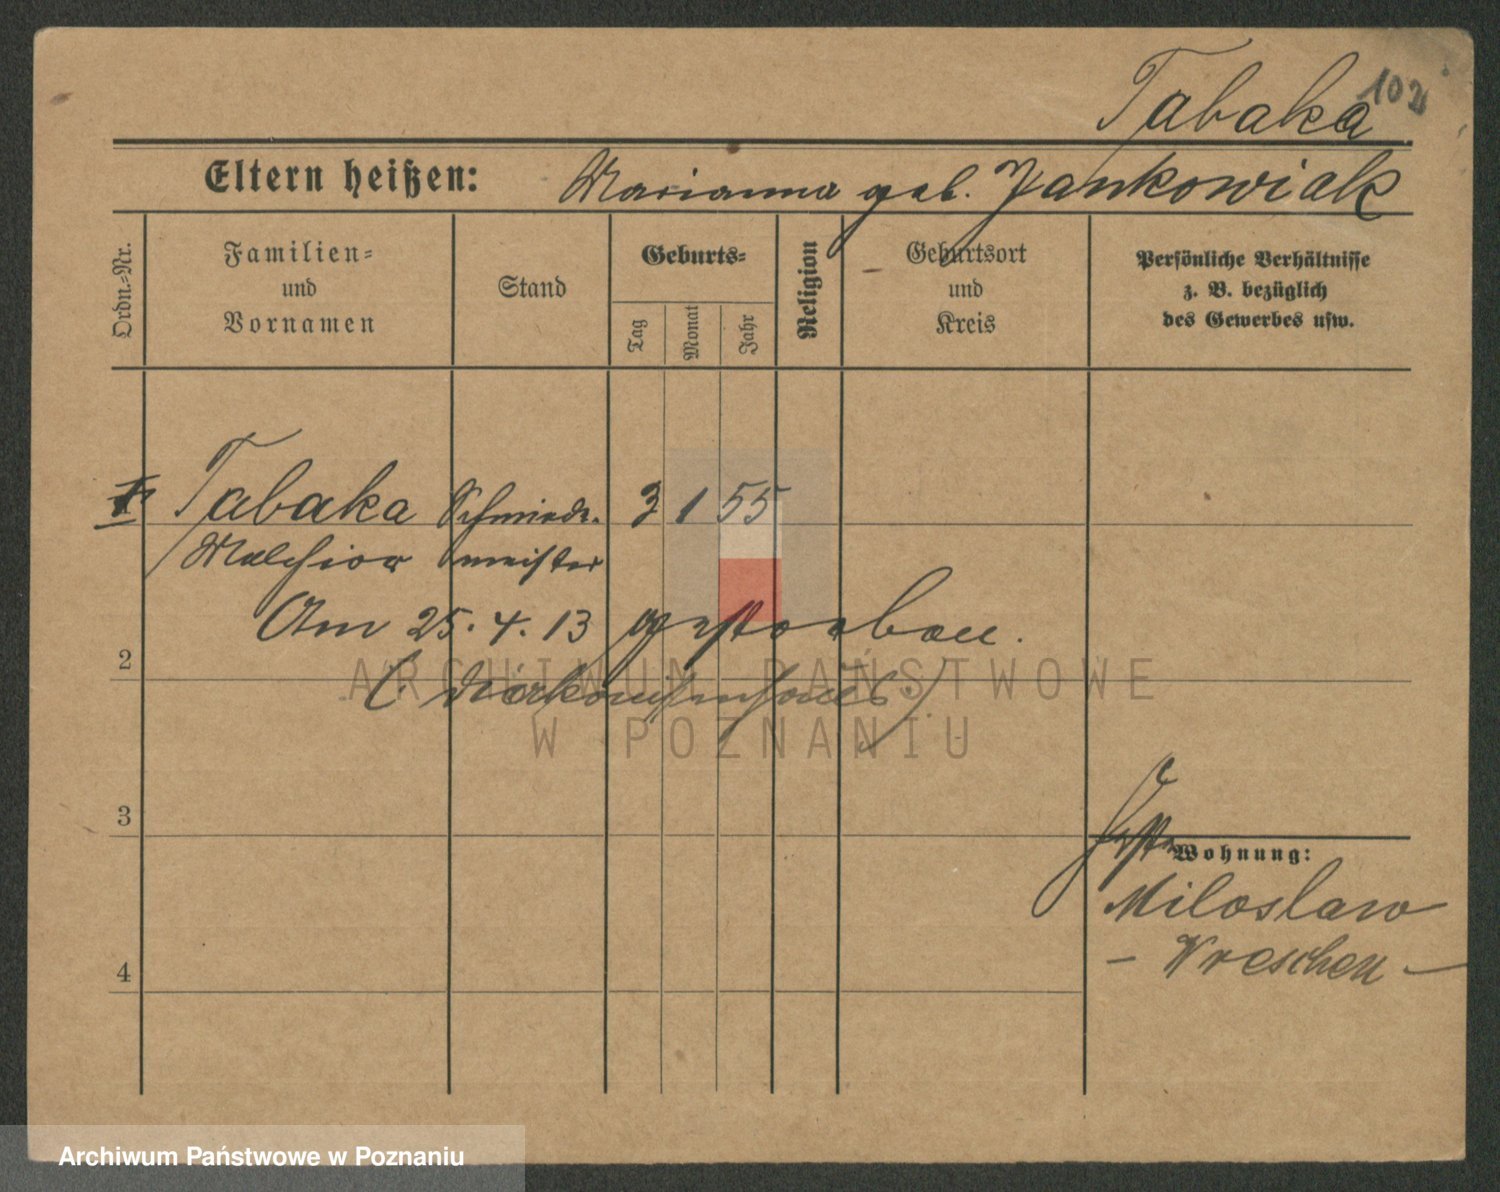 102
Tabaka
Eltern heißen: Marianna geb. Jankowiak
Ordn.-Nr.
Familien-
und
Vornamen
Stand
Geburts-
Tag
Monat
Jahr
Religion
Geburtsort
und
Kreis
Persönliche Verhältnisse
z. B. bezüglich
des Gewerbes usw.
1 Tabaka Schmiede- 3 1 55
Malchior meister
Am 25. 4. 13 gestorben.
2
(Diakonissenhaus)
ARCHIWUM PAŃSTWOWE
W POZNANIU
3
Wohnung:
Miloslaw
- Wreschen -
4
Archiwum Państwowe w Poznaniu